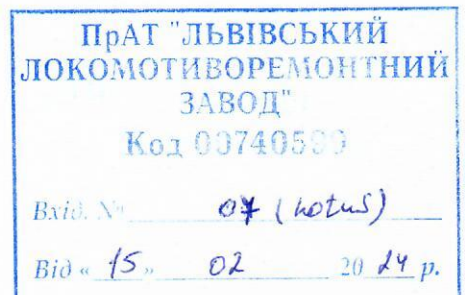 ПрАТ "ЛЬВІВСЬКИЙ
ЛОКОМОТИВОРЕМОНТНИЙ
ЗАВОД"
Код 00740599
Вхід. № 07
Від « 15 » 02 20 24 р.